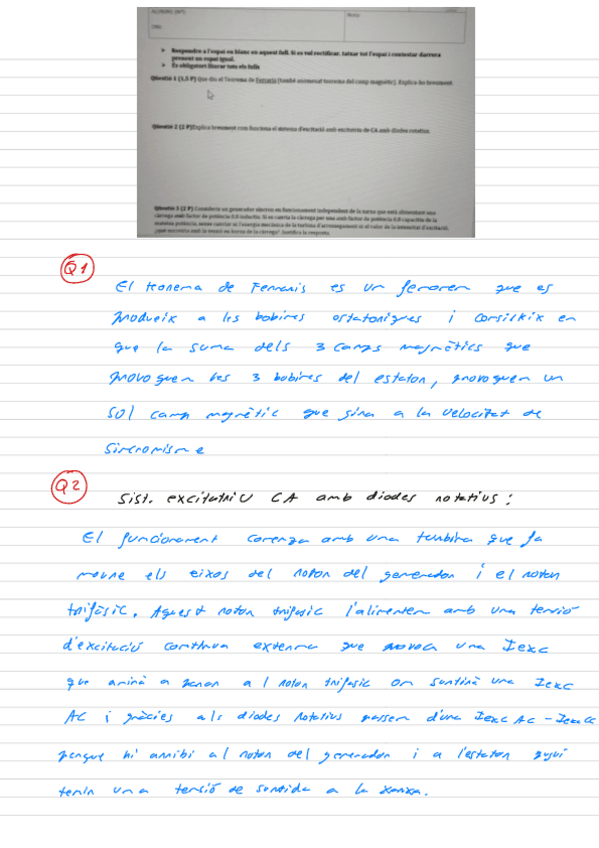 ALUMNE (Nº)
Nota:
➢ Respondre a l'espai en blanc en aquest full. Si es vol rectificar, tatxar tot l'espai i contestar darrera
prement un espai igual.
➢ És obligatori lliurar tots els fulls
Qüestió 1 (1,5 P) Que diu el Teorema de Ferraris (també anomenat teorema del camp magnètic). Explica-ho breument.
Qüestió 2 (2 P) Explica breument com funciona el sistema d'excitació amb excitatriu de CA amb díodes rotatius.
Qüestió 3 (2 P) Considereu un generador síncron en funcionament independent de la xarxa que està alimentant una
càrrega amb factor de potència 0.8 inductiu. Si es canvia la càrrega per una amb factor de potència 0.8 capacitiu de la
mateixa potència, sense canviar ni l'energia mecànica de la turbina d'arrossegament ni el valor de la intensitat d'excitació,
¿què succeiria amb la tensió en borns de la càrrega? Justifica la resposta.
Q1
El teorema de Ferraris es un fenomen que es
produeix a les bobines estatoriques i consisteix en
que la suma dels 3 camps magnètics que
provoquen les 3 bobines del estator, provoquen un
sol camp magnètic que gira a la velocitat de
sincronisme
Q2
Sist. excitatriu CA amb diodes rotatius:
El funcionament comença amb una turbina que fa
moure els eixos del rotor del generador i el rotor
trifàsic. Aquest rotor trifasic l'alimentem amb una tensió
d'excitació continua externa que provoca una Iexc
que anirà a parar al rotor trifasic on sortirà una Iexc
AC i gràcies als diodes rotatius passem d'una Iexc AC - Iexc CC
perque hi arribi al rotor del generador i a l'estator gugui
tenir una tensió de sortida a la xarxa.